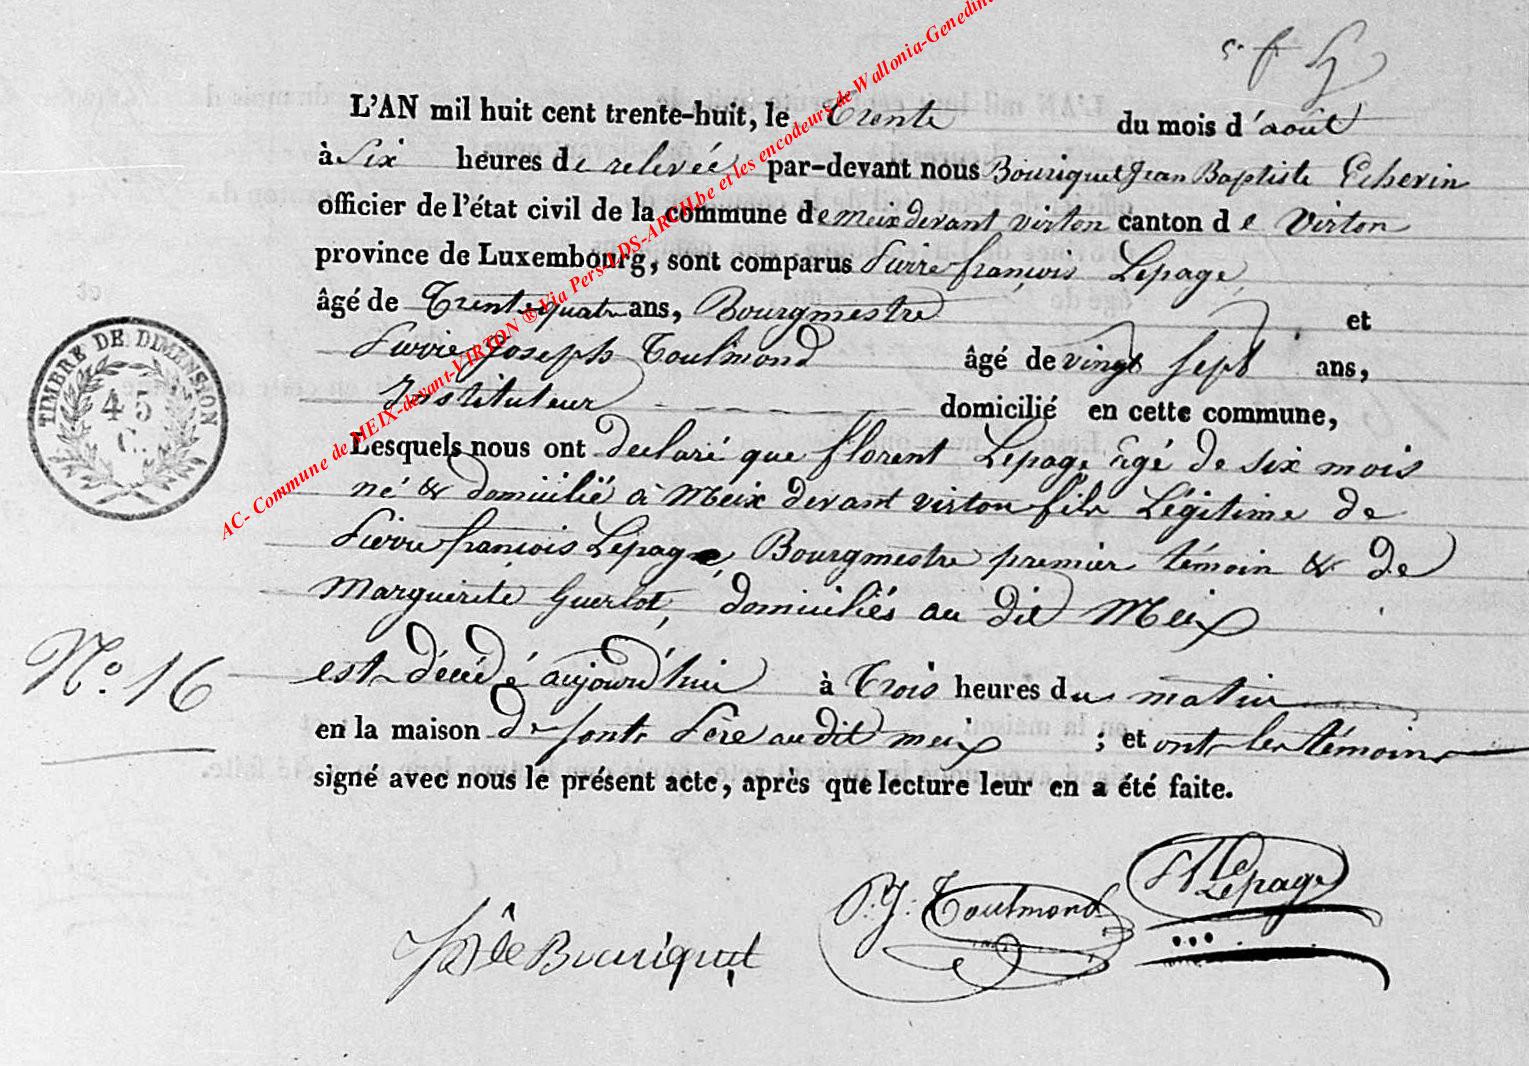 L'AN mil huit cent trente-huit, le Trente du mois d'août
à Six heures de relevée par-devant nous Bouriquet Jean Baptiste Echevin
officier de l'état civil de la commune de meix devant virton canton de Virton
province de Luxembourg, sont comparus Pierre françois Lepage,
âgé de Trente quatre ans, Bourgmestre et
Pierre Joseph Toulmond âgé de vingt sept ans,
Instituteur domicilié en cette commune,
Lesquels nous ont declaré que florent Lepage âgé de six mois
né & domicilié à Meix devant virton fils Légitime de
Pierre françois Lepage, Bourgmestre premier témoin & de
Marguerite Guerlot, domiciliés au dit Meix
N° 16
est décédé aujourd'hui à Trois heures du matin
en la maison de sont Père au dit meix ; et ont les témoins
signé avec nous le présent acte, après que lecture leur en a été faite.
TIMBRE DE DIMENSION
45
C.
AC- Commune de MEIX-devant-VIRTON ® Via Pers-LDS-ARCH.be et les encodeurs de Wallonia-Genedin
P. J. Toulmond
Lepage
Bouriquet